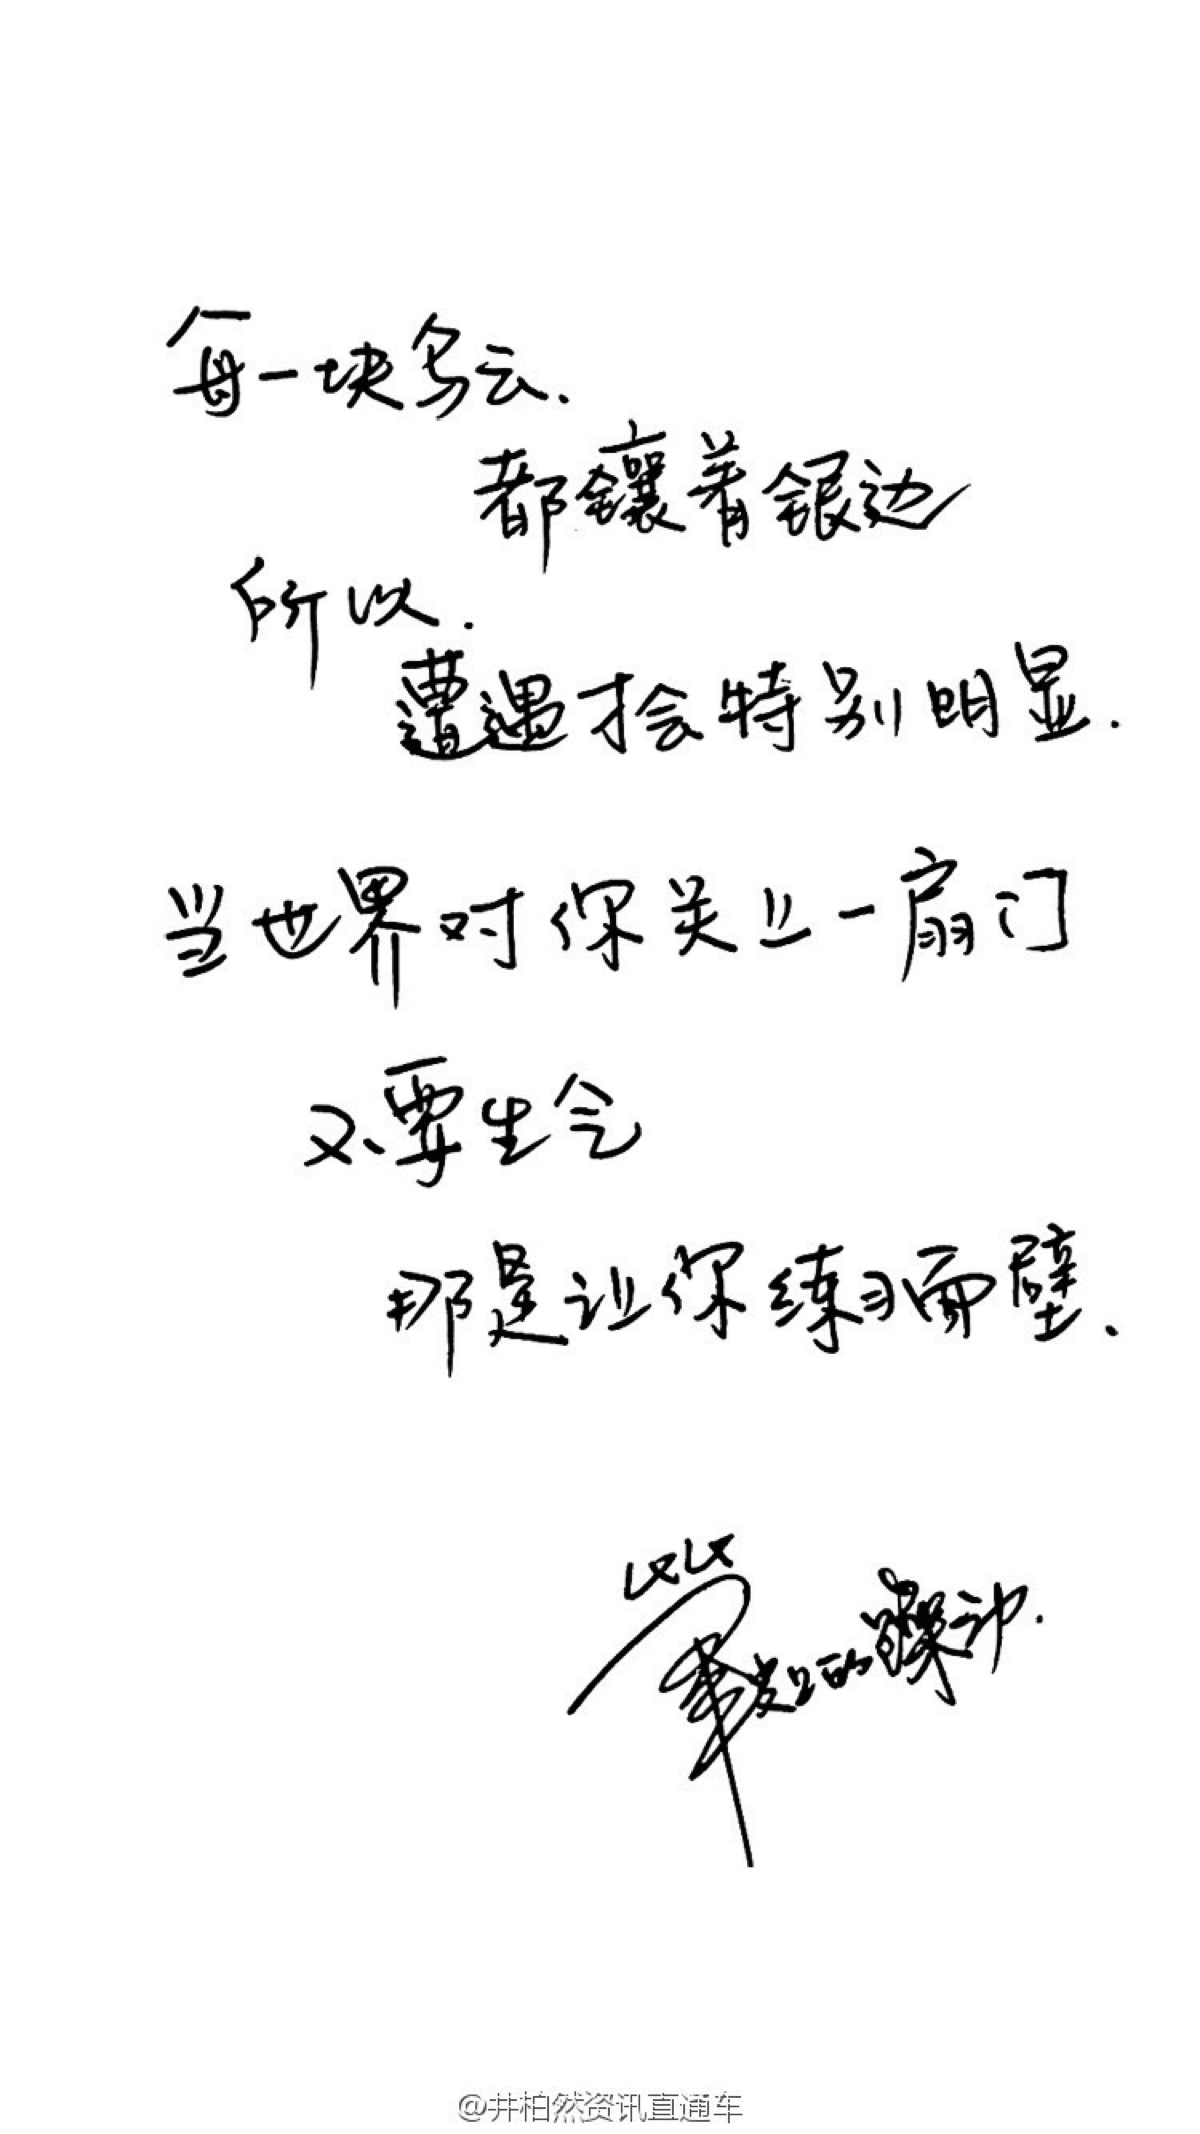 每一块乌云.
都镶着银边
所以.
遭遇才会特别明显.
当世界对你关上一扇门
不要生气
那是让你练习面壁.
的躁动.
@井柏然资讯直通车